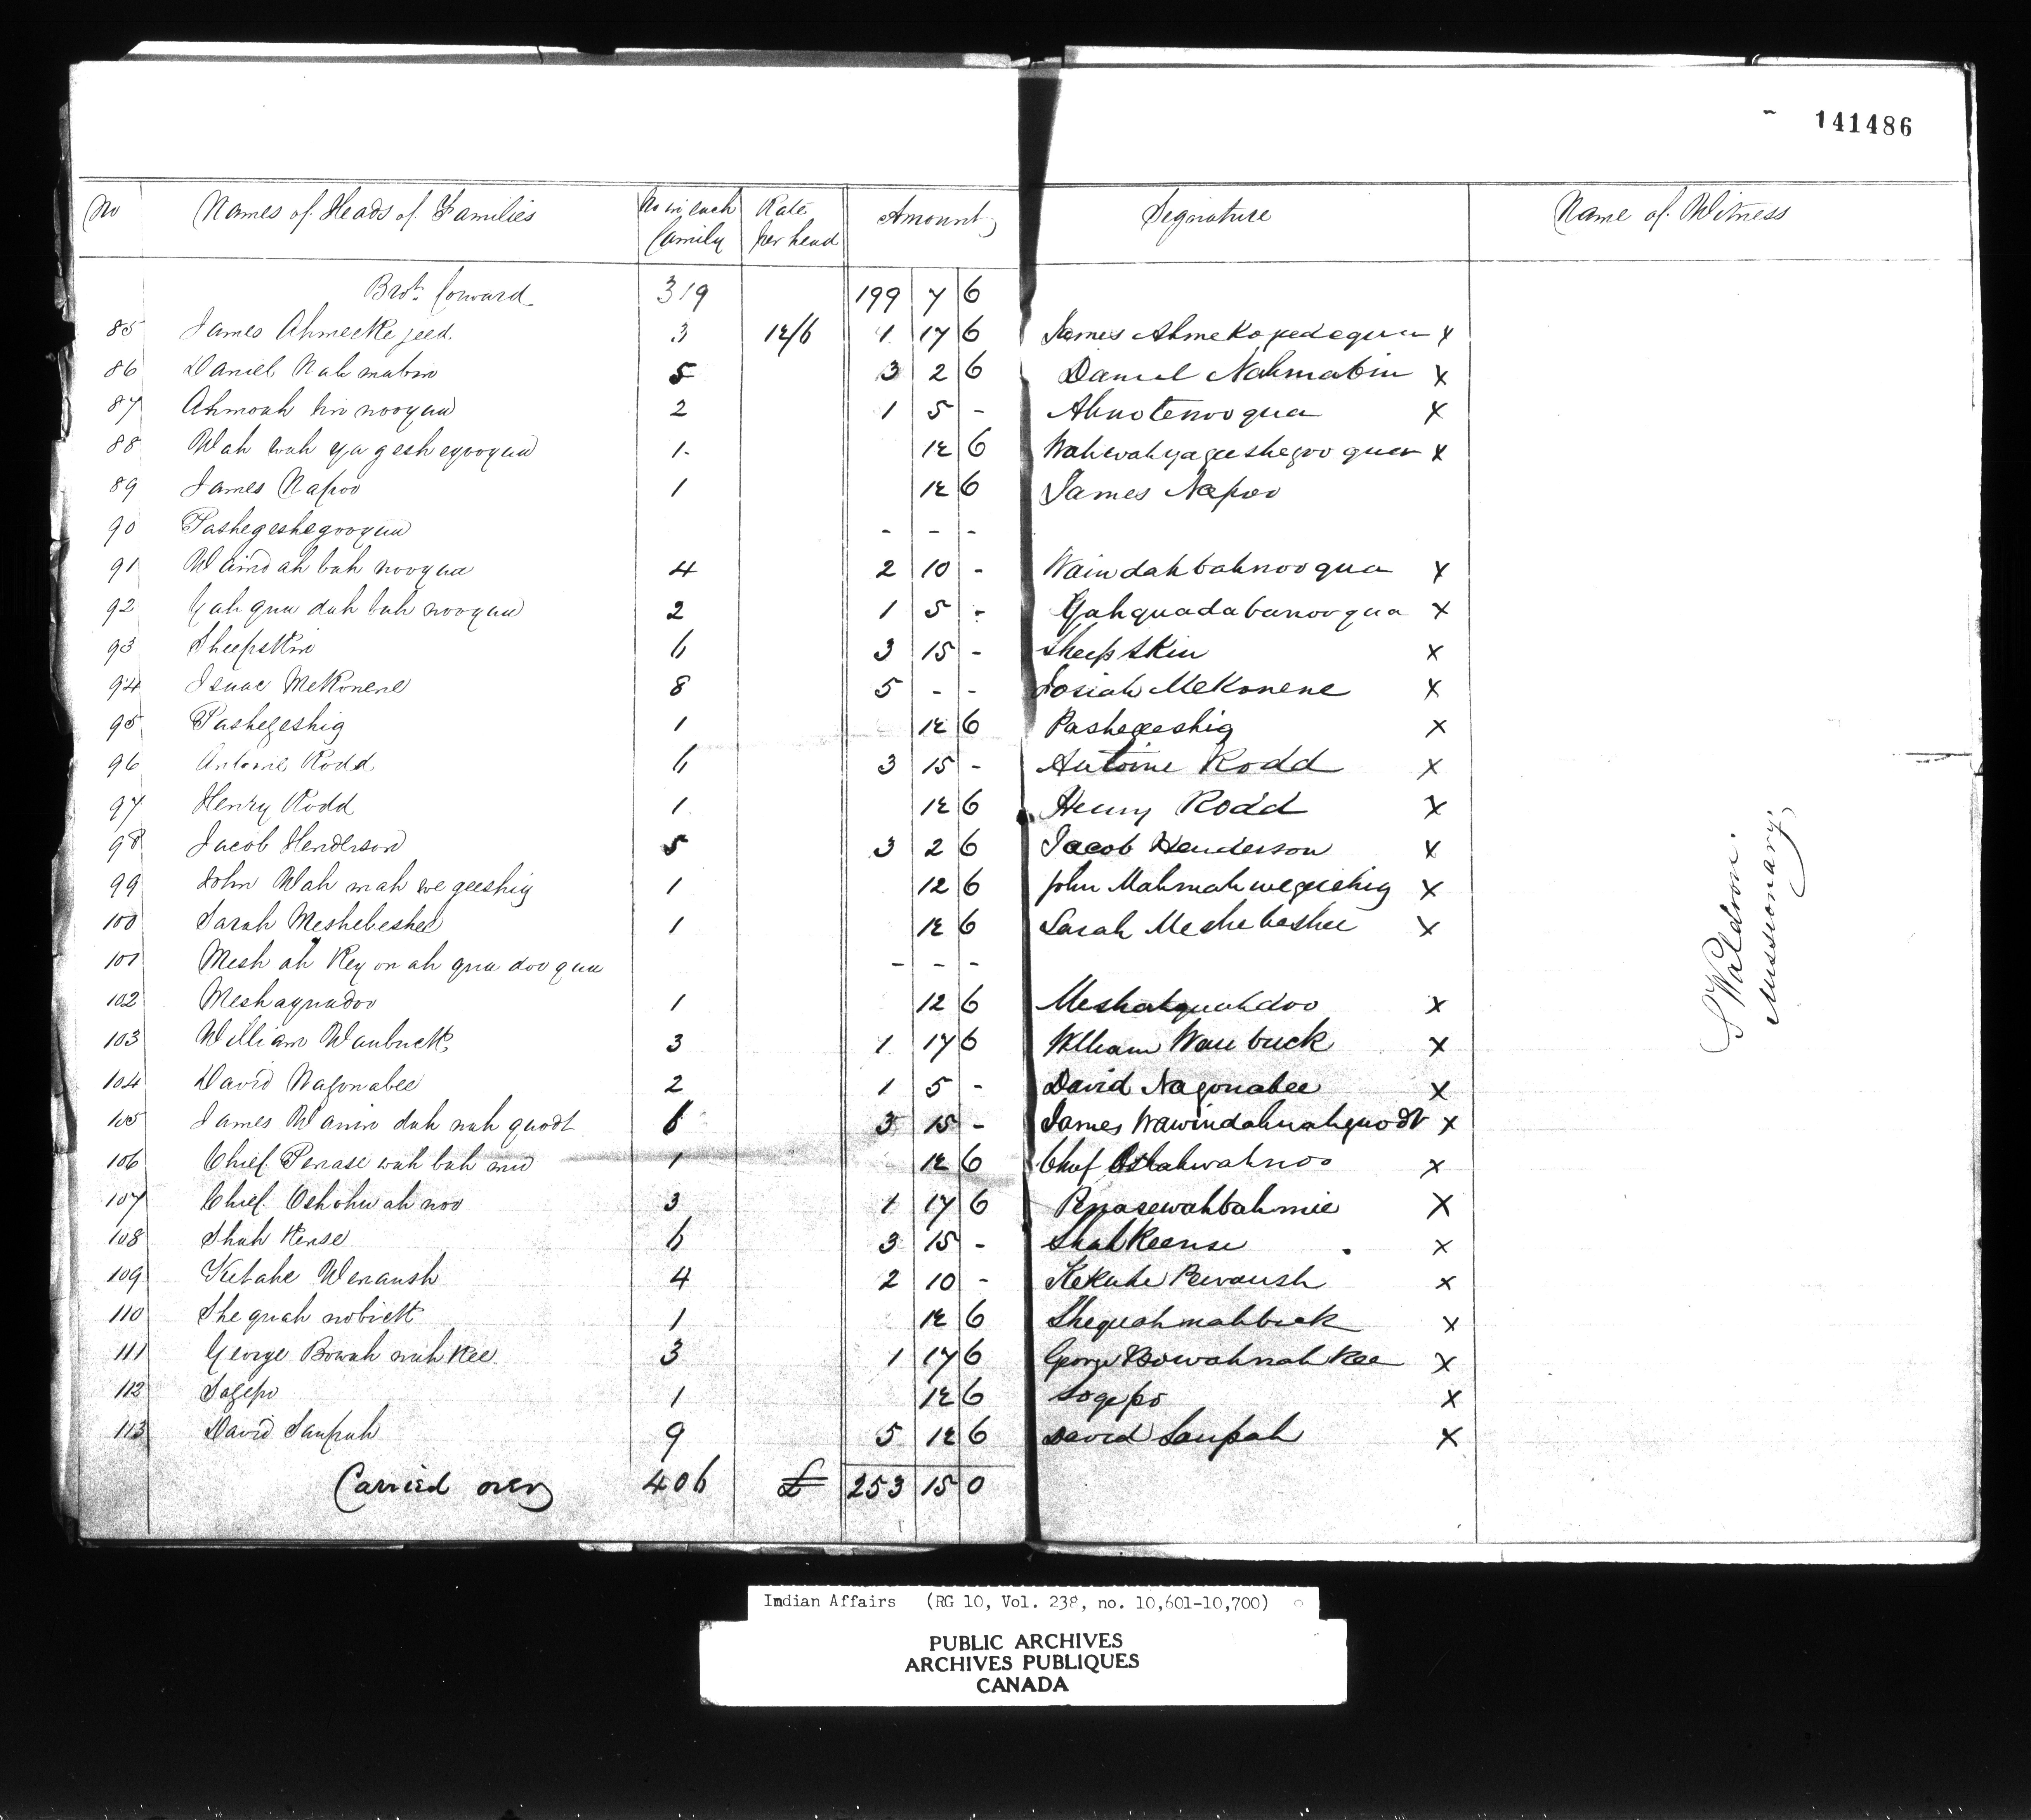 141486
No Names of Heads of Families No in each family Rate per head Amount Signature Name of Witness
Brot. forward 319 199 7 6
85 James Ahmeekejeed 3 12/6 1 17 6 James Ahmekojeedequa x
86 Daniel Nahmabin 5 3 2 6 Daniel Nahmabin x
87 Ahmoah tin nooqua 2 1 5 - Ahnotenooqua x
88 Wah wah ya geshegooqua 1 12 6 Wahwahyageeshegooqua x
89 James Napoo 1 12 6 James Napoo
90 Pashegeshegooqua - - -
91 Waindah bah nooqua 4 2 10 - Waindahbahnooqua x
92 Gah qua dah bah nooqua 2 1 5 - Gahquadabanooqua x
93 Sheepskin 6 3 15 - Sheepskin x
94 Isaac McKonene 8 5 - - Josiah McKonene x
95 Pashegeshig 1 12 6 Pashegeshig x
96 Antoine Rodd 6 3 15 - Antoine Rodd x
97 Henry Rodd 1 12 6 Henry Rodd x
98 Jacob Henderson 5 3 2 6 Jacob Henderson x
99 John Wah mah we geeshig 1 12 6 John Mahmahwegeeshig x
100 Sarah Meshebeshee 1 12 6 Sarah Meshebeshee x
101 Mesh ah key on ah qua doo qua - - -
102 Meshaquadoo 1 12 6 Meshahquahdoo x
103 William Waubuck 3 1 17 6 William Waubuck x
104 David Nagonabee 2 1 5 - David Nagonabee x
105 James Wawin dah nah quodt 6 3 15 - James Wawindahnahquodt x
106 Chief Penase wah bah mie 1 12 6 Chief Oshahwahnoo x
107 Chief Oshohwahnoo 3 1 17 6 Penasewahbahmie x
108 Shah Kense 6 3 15 - Shahkeense x
109 4 2 10 - x
110 She quah nobick 1 12 6 Shequahmahbick x
111 George Bowah nah kee 3 1 17 6 George Bowahnahkee x
112 Sogepo 1 12 6 Sogepo x
113 David Saupah 9 5 12 6 David Saupah x
Carried over 406 £ 253 15 0
S Waldron.
Missionary
Indian Affairs (RG 10, Vol. 238, no. 10,601-10,700)
PUBLIC ARCHIVES
ARCHIVES PUBLIQUES
CANADA